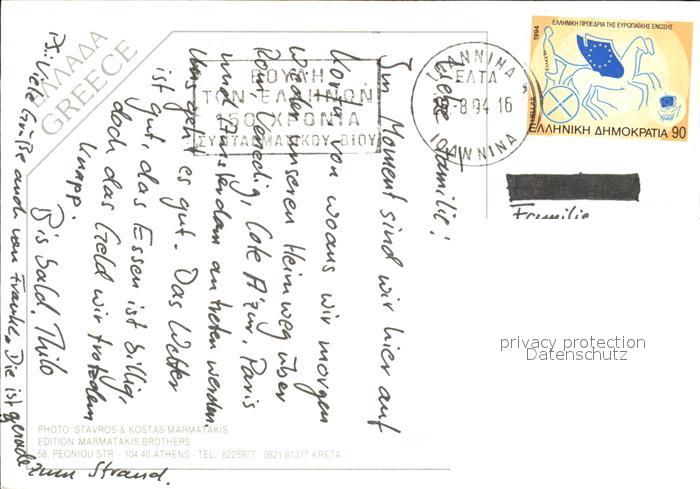 ΕΛΛΑΔΑ
GREECE
ΕΛΛΗΝΙΚΗ ΠΡΟΕΔΡΙΑ ΤΗΣ ΕΥΡΩΠΑΪΚΗΣ ΕΝΩΣΗΣ
1994
HELLAS
ΕΛΛΗΝΙΚΗ ΔΗΜΟΚΡΑΤΙΑ 90
ΙΩΑΝΝΙΝΑ
ΕΛΤΑ
-8-94 16
ΙΟΑΝΝΙΝΑ
ΒΟΥΛΗ
ΤΩΝ ΕΛΛΗΝΩΝ
150 ΧΡΟΝΙΑ
ΣΥΝΤΑΓΜΑΤΙΚΟΥ ΒΙΟΥ
Liebe Familie!
Im Moment sind wir hier auf
Korfu von woaus wir morgen
wieder unseren Heimweg über
Rom, Venedig, Cote Azur, Paris
und Amsterdam antreten werden.
Uns geht es gut. Das Wetter
ist gut, das Essen ist billig,
doch das Geld wir trotzdem
knapp.
Bis bald. Thilo
P.S.: Viele Grüße auch von Frauke. Die ist gerade
zum Strand.
Familie
privacy protection
Datenschutz
PHOTO: STAVROS & KOSTAS MARMATAKIS
EDITION: MARMATAKIS BROTHERS
58, PEONIOU STR. - 104 40 ATHENS - TEL.: 8225977 - 0821-81377 KRETA